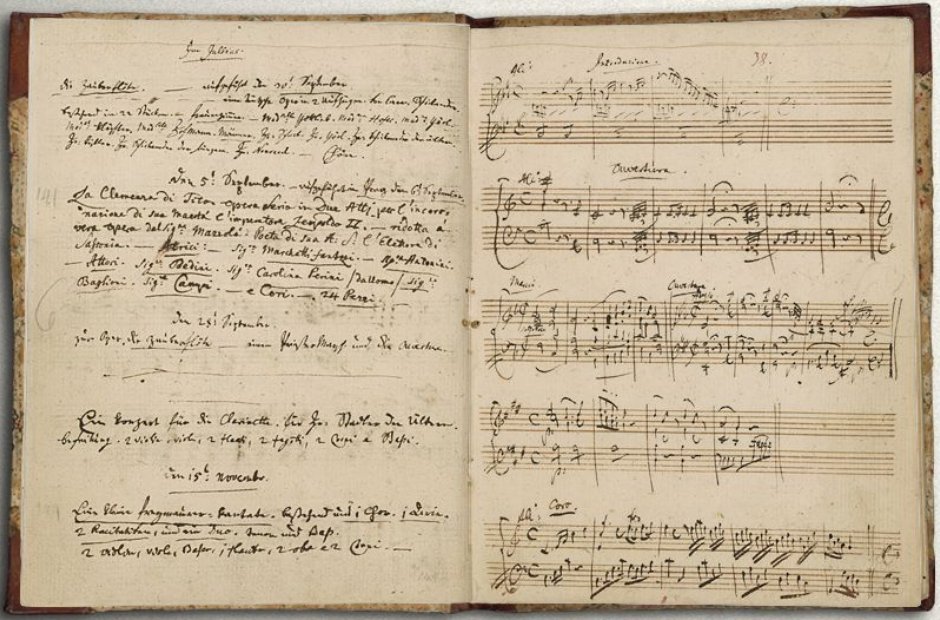 Im Jullius.
die Zauberflöte. — aufgeführt den 30t September.
eine teutsche Oper in 2 Aufzügen. von Eman. Schikaneder.
bestehend in 22 Stücken. — Frauenzimmer. — Mad:selle Gottlieb. Mad:me Hofer. Mad:me Görl.
Mad:me Klöpfler. Mad:selle Hofmann. Männer. Hr: Schack. Hr: Görl. Hr: Schikaneder der ältere.
Hr: Kistler. Hr: Schikaneder der jüngere. Hr: Nouseul. — Chöre. —
den 5t September. — aufgeführt in Prag den 6t September.
La Clemenza di Tito. opera Seria in Due Atti. per l'incoro,
nazione di sua maestà l'imperatore Leopoldo II. — ridotta à
vera opera dal Sigre Mazzolà. Poeta di sua A: S: l'Elettore di
Sassonia. — Attrici: — Sigra Marchetti fantozi. — Sigra Antonini.
— Attori. Sigre Bedini. Sigra Carolina Perini / da uomo / Sigre
Baglioni. Sigre Campi. — e Cori. — 24 Pezzi.
den 28t September.
zur Oper. die Zauberflöte — einen Priester Marsch und die Ouverture. —
Ein konzert für die Clarinette. für Hr: Stadler den Ältern.
begleitung. 2 violini, viole, 2 flauti, 2 fagotti, 2 Corni e Baßi.
den 15t Novembr.
Eine kleine freymaurer-kantate. bestehend aus 1 Chor. 1 Arie.
2 Recitativen, und ein Duo. tenor und Baß.
2 violini, viola, Basso, 1 flauto, 2 oboe e 2 Corni. —
38.
All: Introduzione.
All: Ouvertura.
Marcia Ouverture
Adagio
All: Coro.